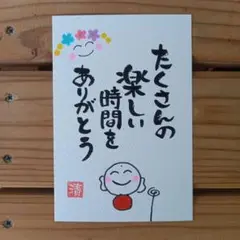 たくさんの
楽しい
時間を
ありがとう
清